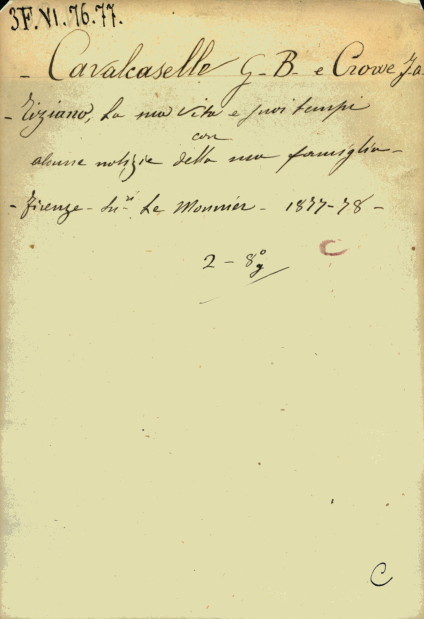 3F.VI.76.77.
- Cavalcaselle G-B- e Crowe J.a.
- Tiziano, la sua vita e suoi tempi
con
alcune notizie della sua famiglia -
- Firenze - Suc.ri Le Monnier - 1877-78 -
2 - 8º
C
C